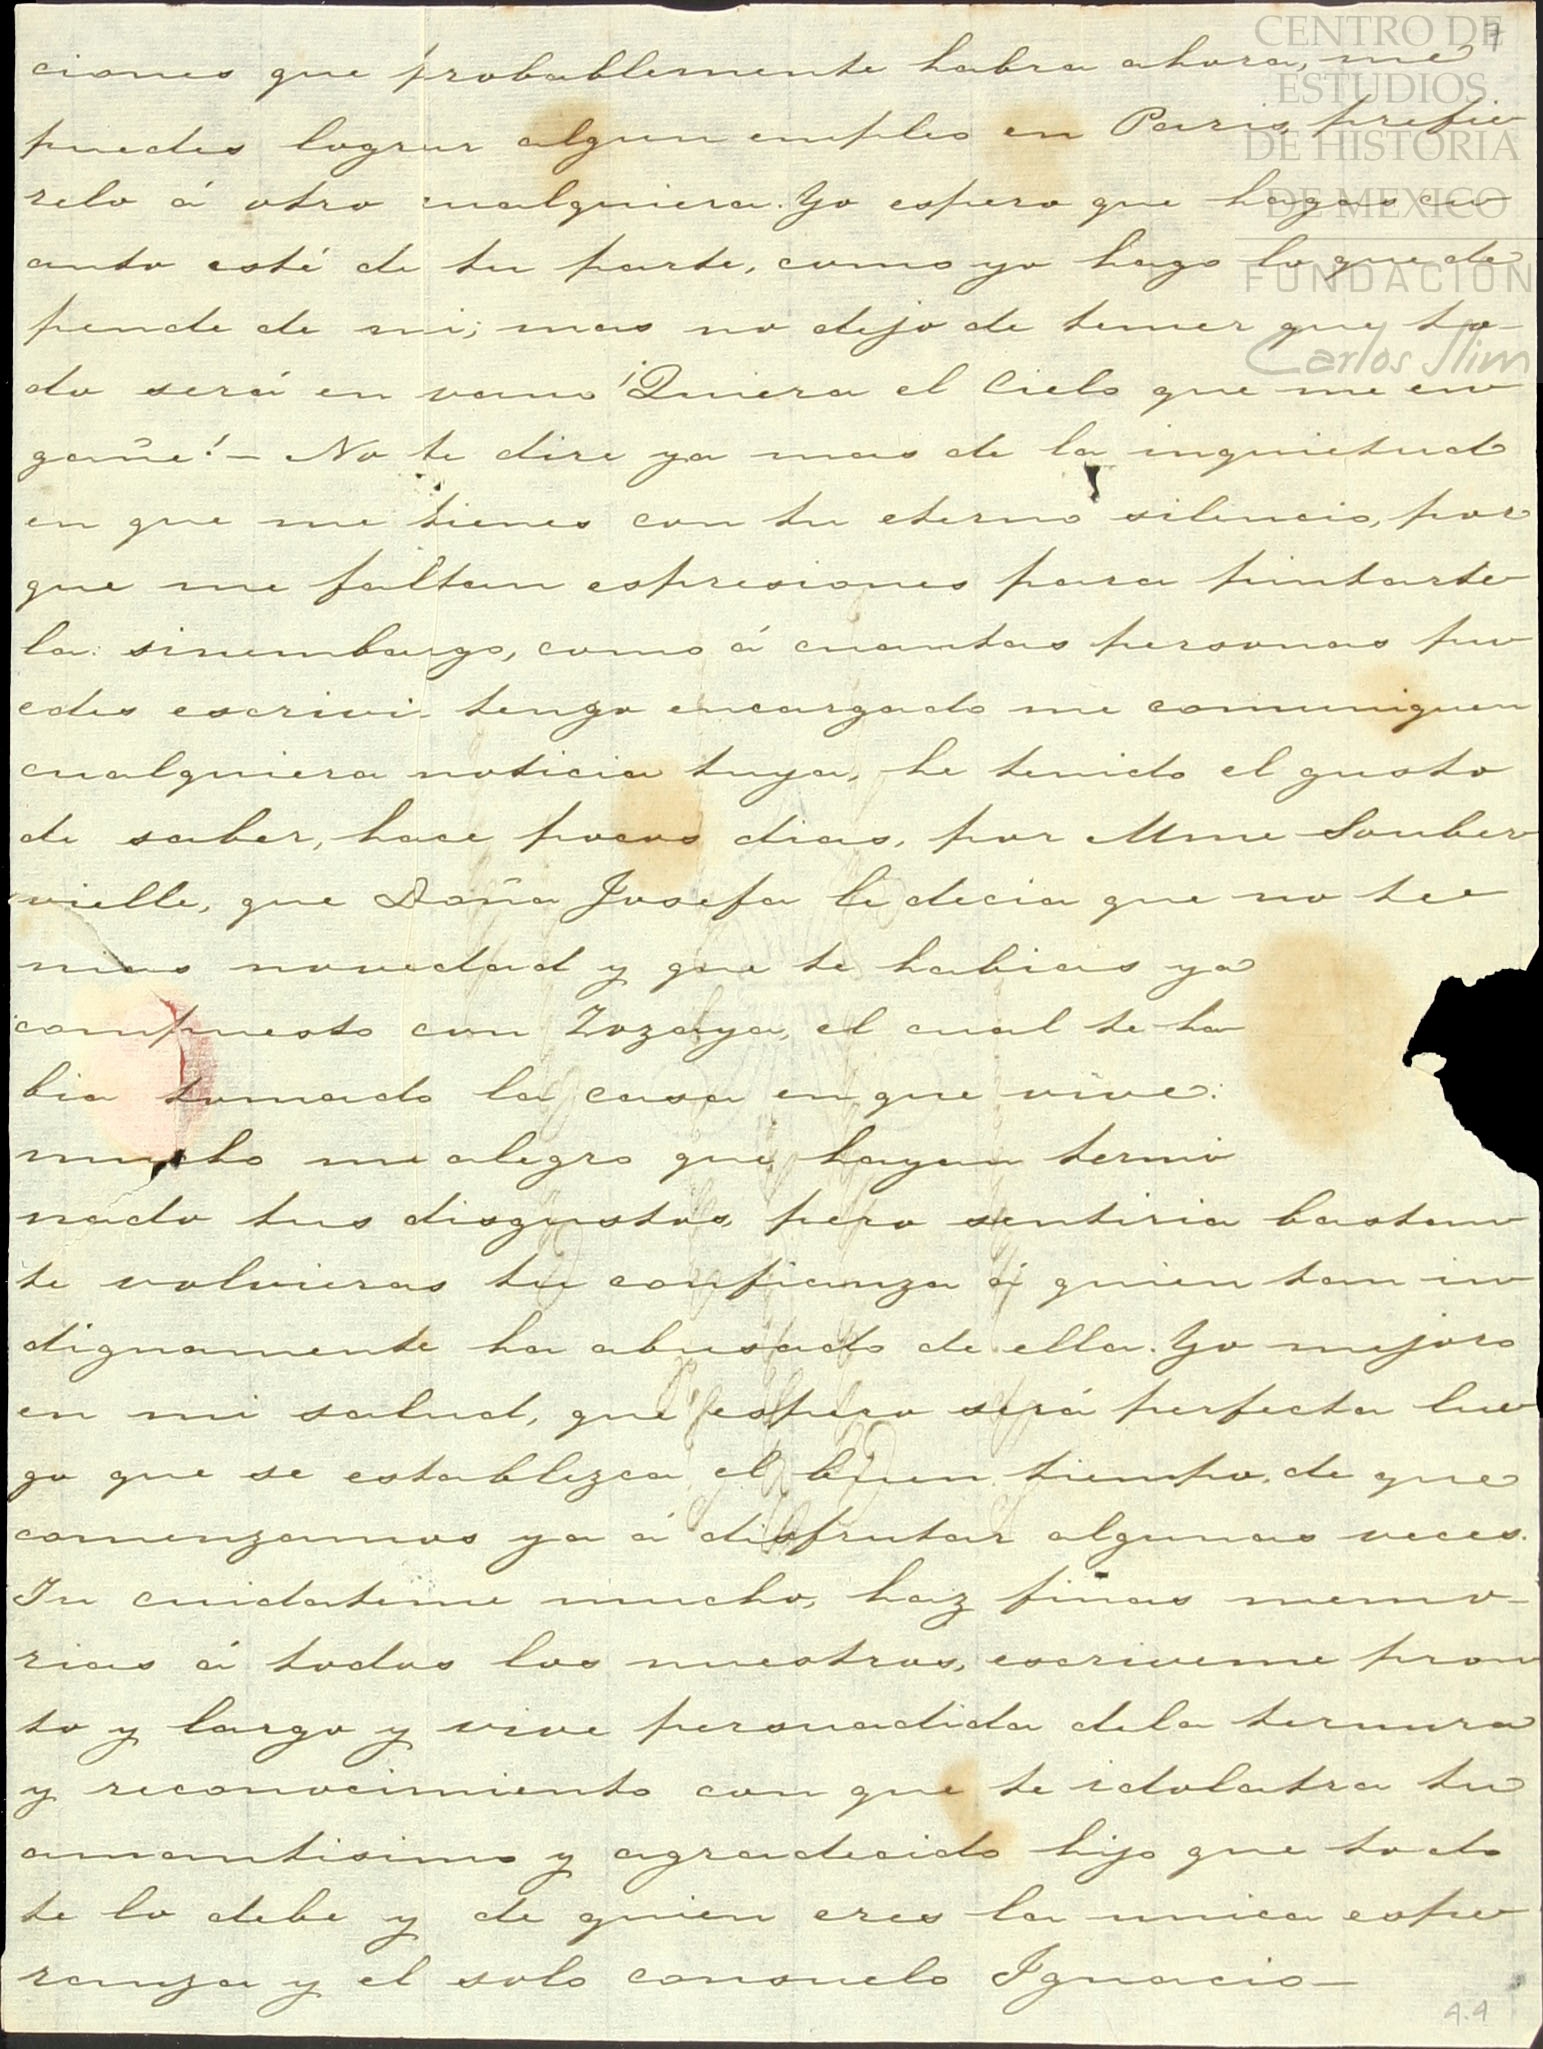 CENTRO DE
ESTUDIOS
DE HISTORIA
DE MEXICO
FUNDACION
Carlos Slim
ciones que probablemente habra ahora, me
puedes lograr algun empleo en Paris, prefie
relo á otro cualquiera. Yo espero que hagas cu
anto esté de tu parte, como yo hago lo que de
pende de mi; mas no dejo de temer que to-
do será en vano ¡Quiera el Cielo que me en
gañe!- No te dire ya mas de la inquietud
en que me tienes con tu eterno silencio, por
que me faltan espresiones para pintarte
la: sinembargo, como á cuantas personas pu
edes escrivi- tengo encargado me comuniquen
cualquiera noticia tuya, he tenido el gusto
de saber, hace pocos dias, por Mme Souber
vielle, que Doña Josefa le decia que no te
nias novedad y que te habias ya
compuesto con Zozaya, el cual te ha
bia tomado la casa en que vive:
mucho me alegro que hayan termi
nado tus disgustos, pero sentiria bastan
te volvieras tu confianza á quien tan in
dignamente ha abusado de ella. Yo mejoro
en mi salud, que espero será perfecta lue
go que se establezca el buen tiempo, de que
comenzamos ya á disfrutar algunas veces.
Tu cuidateme mucho, haz finas memo-
rias á todos los nuestros, escriveme pron
to y largo y vive persuadida dela ternura
y reconocimiento con que te idolatra tu
amantisimo y agradecido hijo que todo
te lo debe y de quien eres la unica espe
ranza y el solo consuelo Ignacio-
4.4